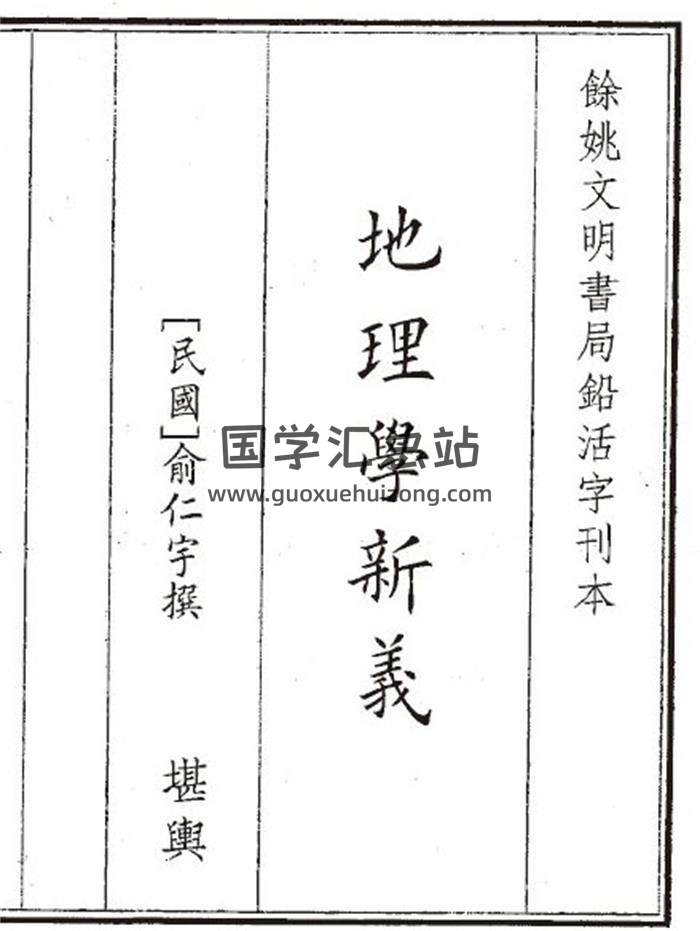 餘姚文明書局鉛活字刊本
地理學新義
［民國］俞仁宇撰
堪輿
国学汇总站
www.guoxuehuizong.com